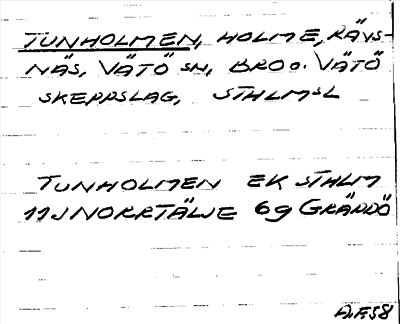 TUNHOLMEN, HOLME, RÄVS-
NÄS, VÄTÖ SN, BRO o. VÄTÖ
SKEPPSLAG, STHLMSL
TUNHOLMEN EK STHLM
11J NORRTÄLJE 69 GRÄDDÖ
A.F.58